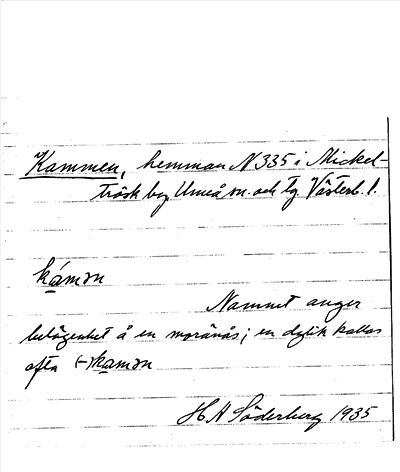 Kammen, hemman N 335 i Mickel-
träsk by Umeå sn. och tg. Västerb. l.
kámɘn
Namnet anger
belägenhet å en moränås; en dylik kallas
ofta (-)kamɘn
H. A Söderberg 1935